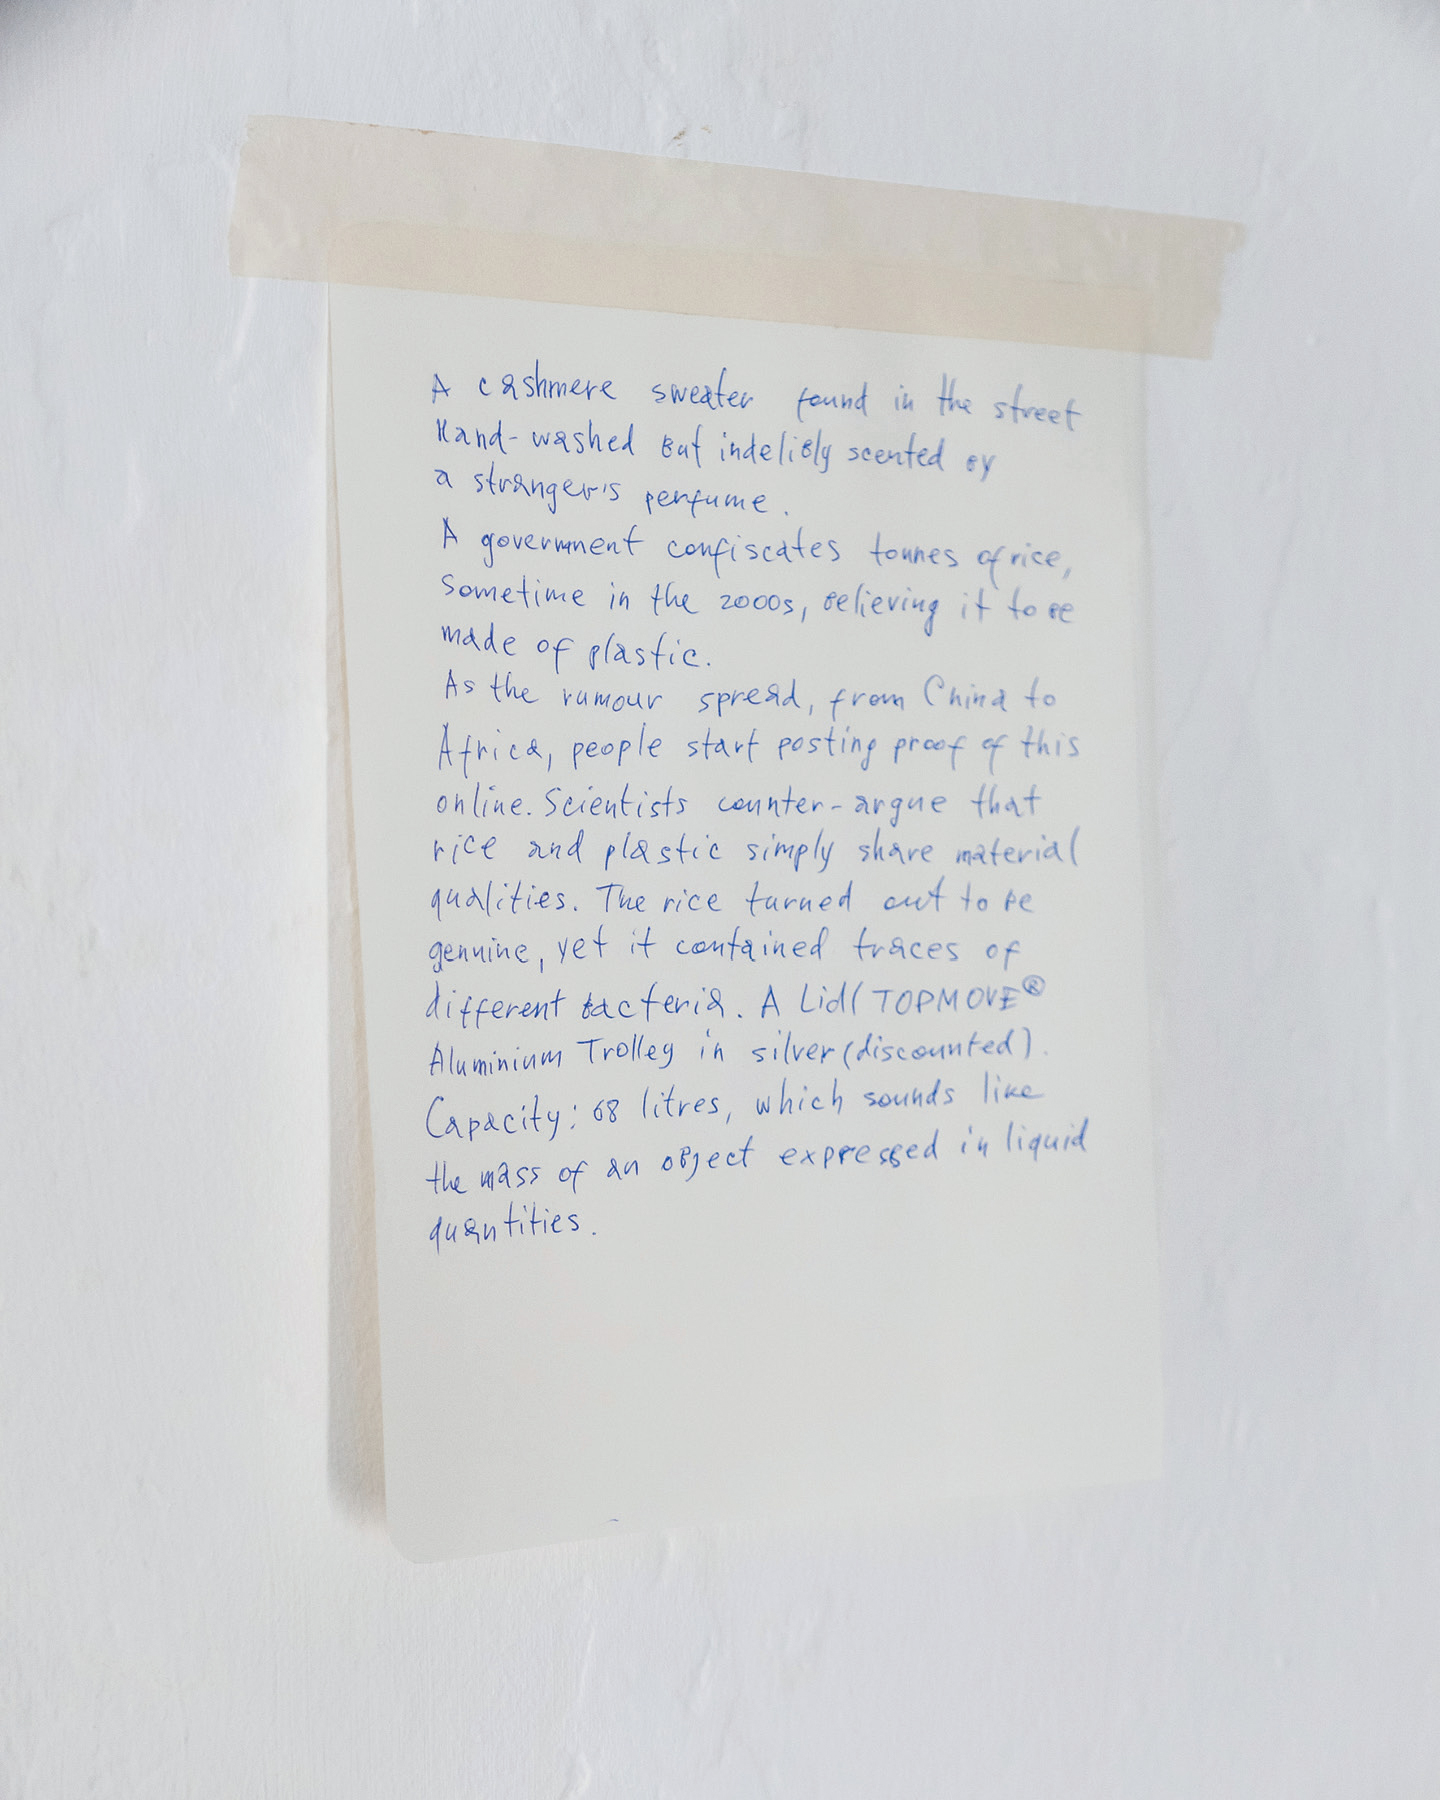 A cashmere sweater found in the street
Hand-washed But indelibly scented by
a stranger's perfume.
A government confiscates tonnes of rice,
Sometime in the 2000s, believing it to be
made of plastic.
As the rumour spread, from China to
Africa, people start posting proof of this
online. Scientists counter-argue that
rice and plastic simply share material
qualities. The rice turned out to be
genuine, yet it contained traces of
different bacteria. A Lidl TOPMOVE®
Aluminium Trolley in silver (discounted).
Capacity: 68 litres, which sounds like
the mass of an object expressed in liquid
quantities.